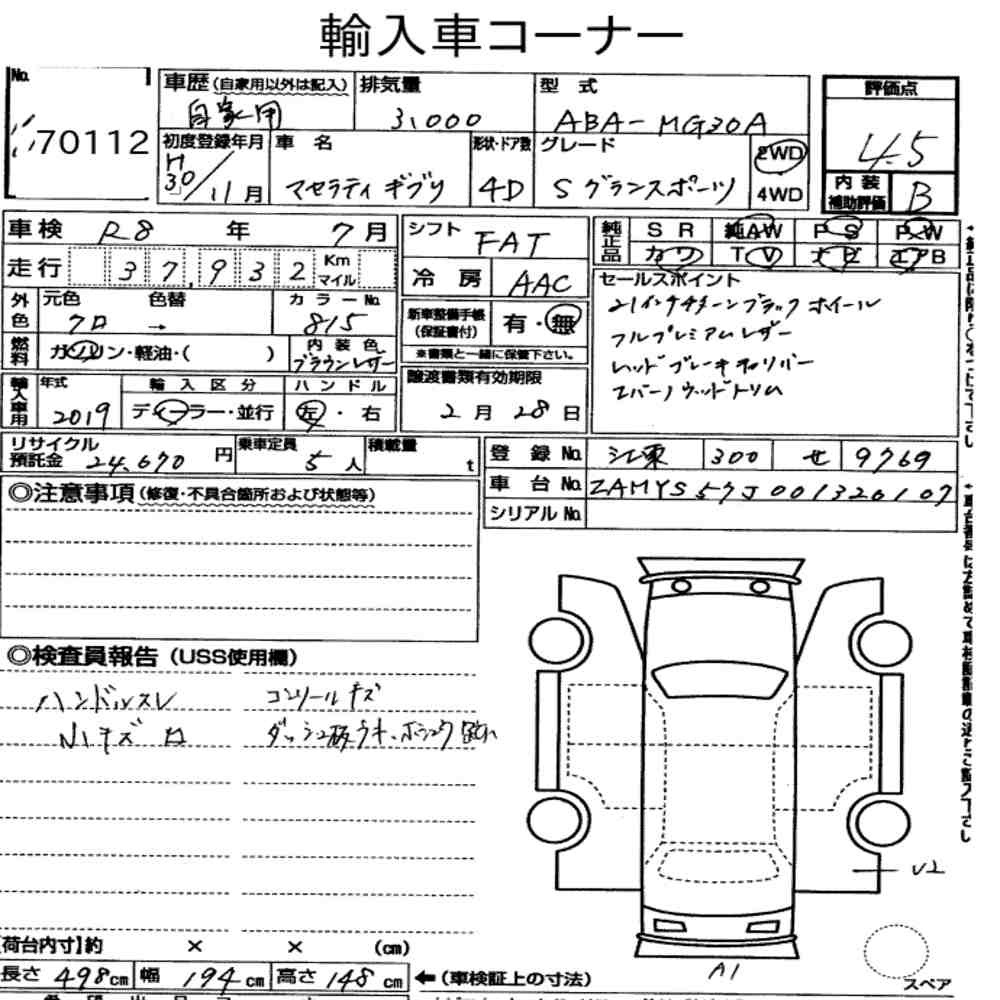 輸入車コーナー
No. 70112
車歴 (自家用以外は記入) 自家用
排気量 3,000
型式 ABA-MG30A
評価点 4.5
初度登録年月 H30/11月
車名 マセラティ ギブリ
形状・ドア数 4D
グレード S グランスポーツ
2WD
4WD
内装補助評価 B
車検 R8年 7月
走行 37,932 Km マイル
シフト FAT
冷房 AAC
純正品 SR 純AW PS PW
カワ TV ナビ エアB
外色 元色 クロ 色替 → カラーNo. 815
新車整備手帳(保証書付) 有・無
※書類と一緒に保管下さい。
セールスポイント
21インチチターンブラックホイール
フルプレミアムレザー
レッドブレーキキャリパー
エバーノウッドトリム
燃料 ガソリン・軽油・( )
内装色 ブラウンレザー
譲渡書類有効期限 2月28日
輸入車用 年式 2019
輸入区分 ディーラー・並行
ハンドル 左・右
リサイクル預託金 24,670円
乗車定員 5人
積載量 t
登録No. 江東 300 せ 9769
車台No. ZAMYS57J001320107
シリアルNo.
◎注意事項 (修復・不具合箇所および状態等)
◎検査員報告 (USS使用欄)
ハンドルスレ
小キズ
コンソールキズ
ダッシュ板ウキ、
U2
A1
スペア
【荷台内寸】約 × × (cm)
長さ 498cm 幅 194cm 高さ 148cm ←(車検証上の寸法)